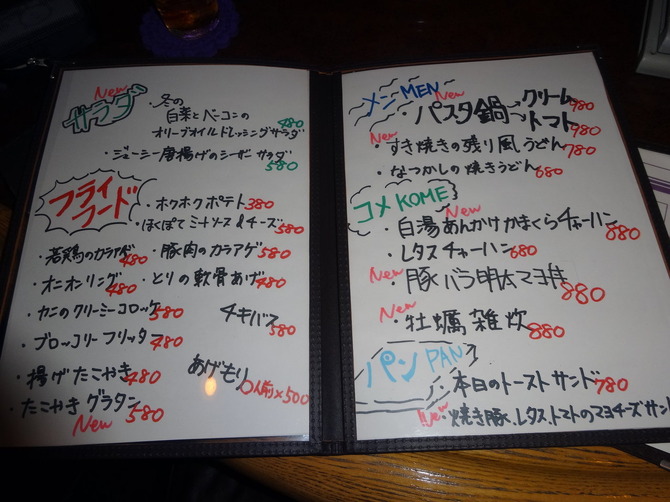 New
サラダ
・冬の
白菜とベーコンの
オリーブオイルドレッシングサラダ 480
・ジューシー唐揚げのシーザーサラダ 580
フライフード
・ホクホクポテト 380
・ほくぽてミートソース&チーズ 580
・若鶏のカラアゲ 480
・豚肉のカラアゲ 580
・オニオンリング 480
・とりの軟骨あげ 480
・カニのクリーミーコロッケ 580
・チキバス 580
・ブロッコリーフリッター 480
・揚げたこやき 480
あげもり
○人前×500
・たこやきグラタン 580
New
メン MEN
New
・パスタ鍋→クリーム 980
→トマト 980
New
・すき焼きの残り風うどん 780
・なつかしの焼きうどん 680
コメ KOME
New
・白湯あんかけかまくらチャーハン 880
・レタスチャーハン 680
New
・豚バラ明太マヨ丼 880
New
・牡蠣雑炊 880
パン PAN
・本日のトーストサンド 780
New
・焼き豚、レタス、トマトのマヨチーズサンド